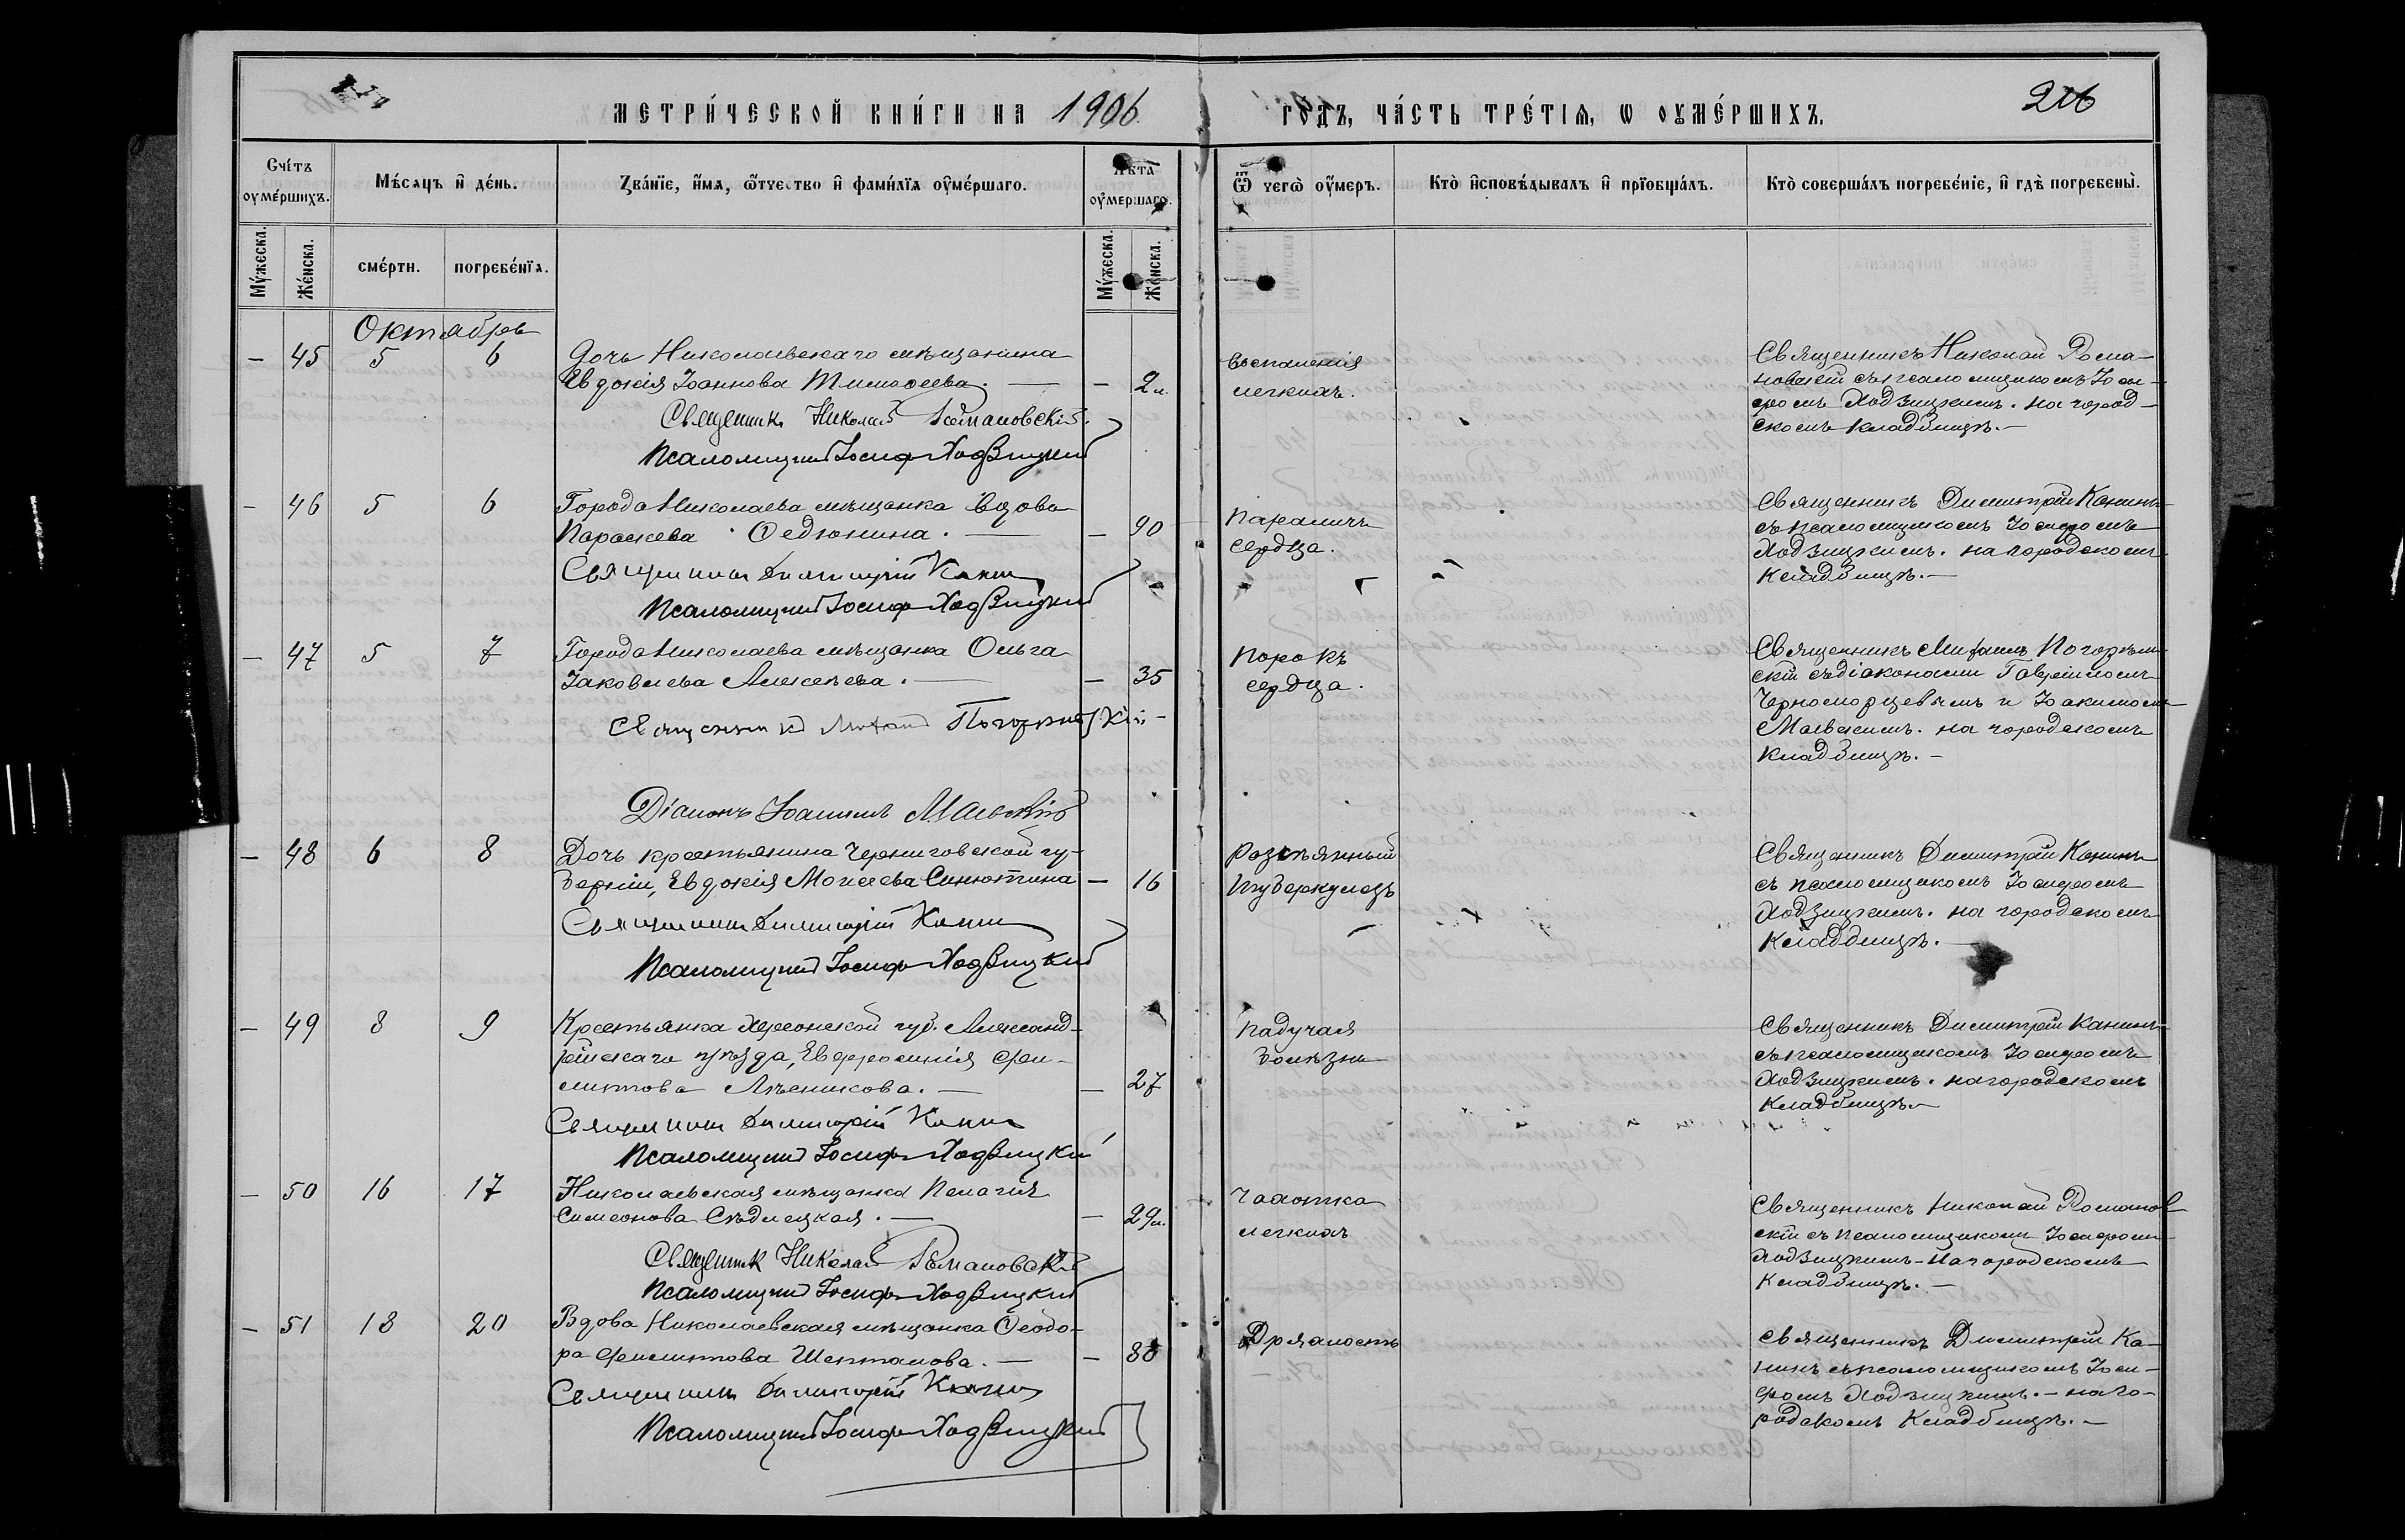 МЕТРИ́ЧЕСКОЙ КНИ́ГИ НА 1906 ГО́ДЪ, ЧА́СТЬ ТРЕ́ТІѦ, Ѡ ОУМЕ́РШИХЪ.
216
Счі́тъ оумéршихъ.
Мѣ́сяцъ и҆ де́нь.
Зва́нїе, и҆́мѧ, ѻ҆́тчество и҆ фами́лїѧ оумéршаго.
Лѣ́та оумéршаго.
Ѿ чегѡ̀ оу҆́меръ.
Кто̀ и҆сповѣ́дывалъ и҆ прїѡбща́лъ.
Кто̀ соверша́лъ погребе́нїе, и҆ гдѣ̀ погребены̀.
Му́жеска. Же́нска. сме́рти. погребе́нїѧ. Му́жеска. Же́нска.
Октябрь
— 45 5 6
Дочь Николаевскаго мѣщанина
Евдокія Іоаннова Тимоѳеева. — — 2 м.
Священник Николай Романовскій.
Псаломщикъ Іосифъ Ходзицкій
Воспаленія
легкихъ.
Священникъ Николай Рома-
новскій съ псаломщикомъ Іоси-
фомъ Ходзицкимъ. на город-
скомъ кладбищѣ. —
— 46 5 6
Города Николаева мѣщанка вдова
Параскева Ѳедюнина. — — 90
Священникъ Димитрій Канинъ
Псаломщикъ Іосифъ Ходзицкій
Параличъ
сердца.
Священникъ Димитрій Канинъ
съ псаломщикомъ Іосифомъ
Ходзицкимъ. на городскомъ
кладбищѣ. —
— 47 5 7
Города Николаева мѣщанка Ольга
Іаковлева Алексѣева. — — 35
Священникъ Михаил Погорѣльскій
Діаконъ Іоакимъ Маевскій
Порокъ
сердца.
Священникъ Михаилъ Погорѣль-
скій съ діаконами Гавріиломъ
Черноморцевымъ и Іоакимомъ
Маевскимъ. на городскомъ
кладбищѣ. —
— 48 6 8
Дочь крестьянина Черниговской гу-
берніи, Евдокія Моисеева Синютина — 16
Священникъ Димитрій Канинъ
Псаломщикъ Іосифъ Ходзицкій
Разсѣянный
туберкулезъ
Священникъ Димитрій Канинъ
съ псаломщикомъ Іосифомъ
Ходзицкимъ. на городскомъ
кладбищѣ. —
— 49 8 9
Крестьянка Херсонской губ. Александ-
рійскаго уѣзда, Евфросинія Фи-
липпова — 27
Священникъ Димитрій Канинъ
Псаломщикъ Іосифъ Ходзицкій
Падучая
болѣзнь
Священникъ Димитрій Канинъ
съ псаломщикомъ Іосифомъ
Ходзицкимъ. на городскомъ
кладбищѣ —
— 50 16 17
Николаевская мѣщанка Пелагія
Симеонова Сѣдлецкая. — — 29 л.
Священник Николай Романовскій
Псаломщикъ Іосифъ Ходзицкій
Чахотка
легкихъ
Священникъ Николай Романов
скій съ псаломщикомъ Іосифомъ
Ходзицкимъ - на городскомъ
кладбищѣ. —
— 51 18 20
Вдова Николаевская мѣщанка Ѳеодо-
ра Филиппова Шепталова. — — 80
Священникъ Димитрій Канинъ
Псаломщикъ Іосифъ Ходзицкій
Дряхлость
Священникъ Димитрій Ка-
нинъ съ псаломщикомъ Іоси-
фомъ Ходзицкимъ. — на го-
родскомъ кладбищѣ. —